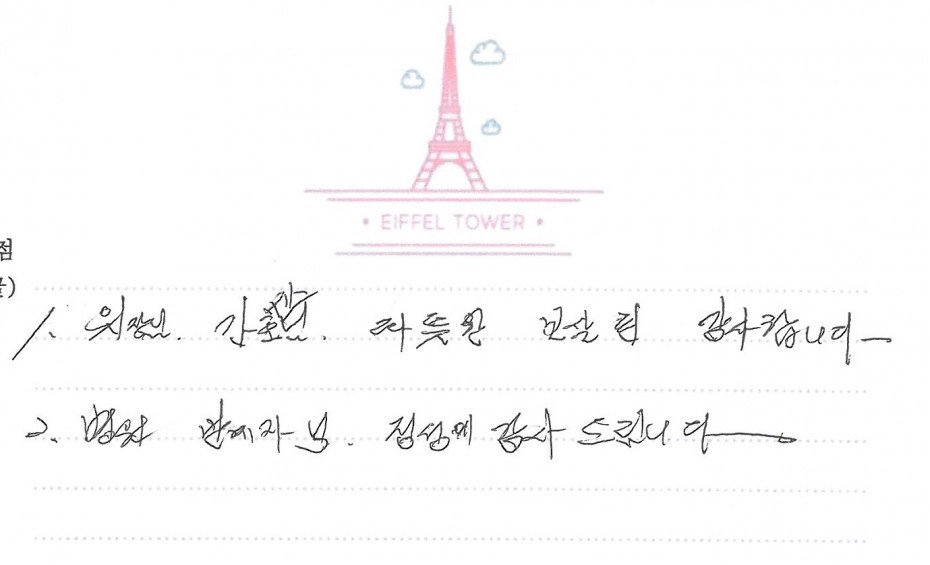 EIFFEL TOWER
점
글)
1. 원장님. 간호님. 따뜻한 보살핌 감사합니다
2. 병원 관계자님. 정성에 감사 드립니다